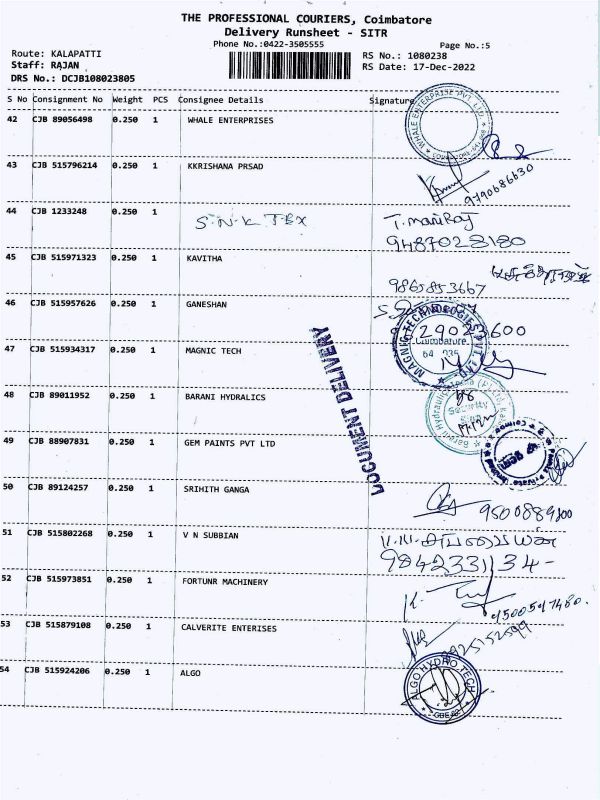 THE PROFESSIONAL COURIERS, Coimbatore
Delivery Runsheet - SITR
Phone No.:0422-3505555
Page No.:5
Route: KALAPATTI
RS No.: 1080238
Staff: RAJAN
RS Date: 17-Dec-2022
DRS No.: DCJB108023805
S No Consignment No Weight PCS Consignee Details Signature
42 CJB 89056498 0.250 1 WHALE ENTERPRISES
WHALE ENTERPRISE PVT. LTD.
43 CJB 515796214 0.250 1 KKRISHANA PRSAD
9790686630
44 CJB 1233248 0.250 1 S.N.K TEX T. maniRaj
9487028180
45 CJB 515971323 0.250 1 KAVITHA
9865853667
46 CJB 515957626 0.250 1 GANESHAN
47 CJB 515934317 0.250 1 MAGNIC TECH
MAGNIC TECHNOLOGIES PVT. LTD
Coimbatore.
DOCUMENT DELIVERY
48 CJB 89011952 0.250 1 BARANI HYDRALICS
Security
49 CJB 88907831 0.250 1 GEM PAINTS PVT LTD
50 CJB 89124257 0.250 1 SRIHITH GANGA
9500889800
51 CJB 515802268 0.250 1 V N SUBBIAN
9842331134-
52 CJB 515973851 0.250 1 FORTUNR MACHINERY
53 CJB 515879108 0.250 1 CALVERITE ENTERISES
54 CJB 515924206 0.250 1 ALGO
ALGO HYDRO TECH